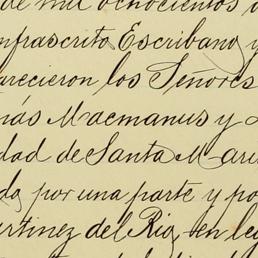 de mil ochocientos
infrascrito Escribano y
arecieron los Señores
más Macmanus y
dad de Santa Mari
da por una parte y po
artinez del Rio, en le